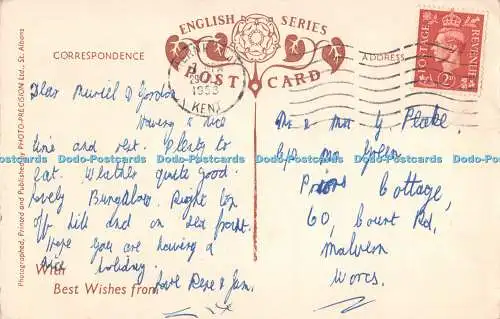 ENGLISH SERIES
POST CARD
CORRESPONDENCE
ADDRESS
POSTAGE
REVENUE
KENT
1953
Photographed, Printed and Published by PHOTO-PRECISION Ltd., St. Albans
Dear Muriel & Gordon
Having a nice
time and rest. Plenty to
eat. Weather quite good.
Lovely Bungalow. Right top
of hill and on sea front.
Hope you are having a
nice holiday
Love Rene & Jim.
With
Best Wishes from
Mr & Mrs G. Plake.
C/o Mrs Green
Priors Cottage,
60, Court Rd,
Malvern
Worcs.
Dodo-Postcards Dodo-Postcards Dodo-Postcards Dodo-Postcards Dodo-Postcards